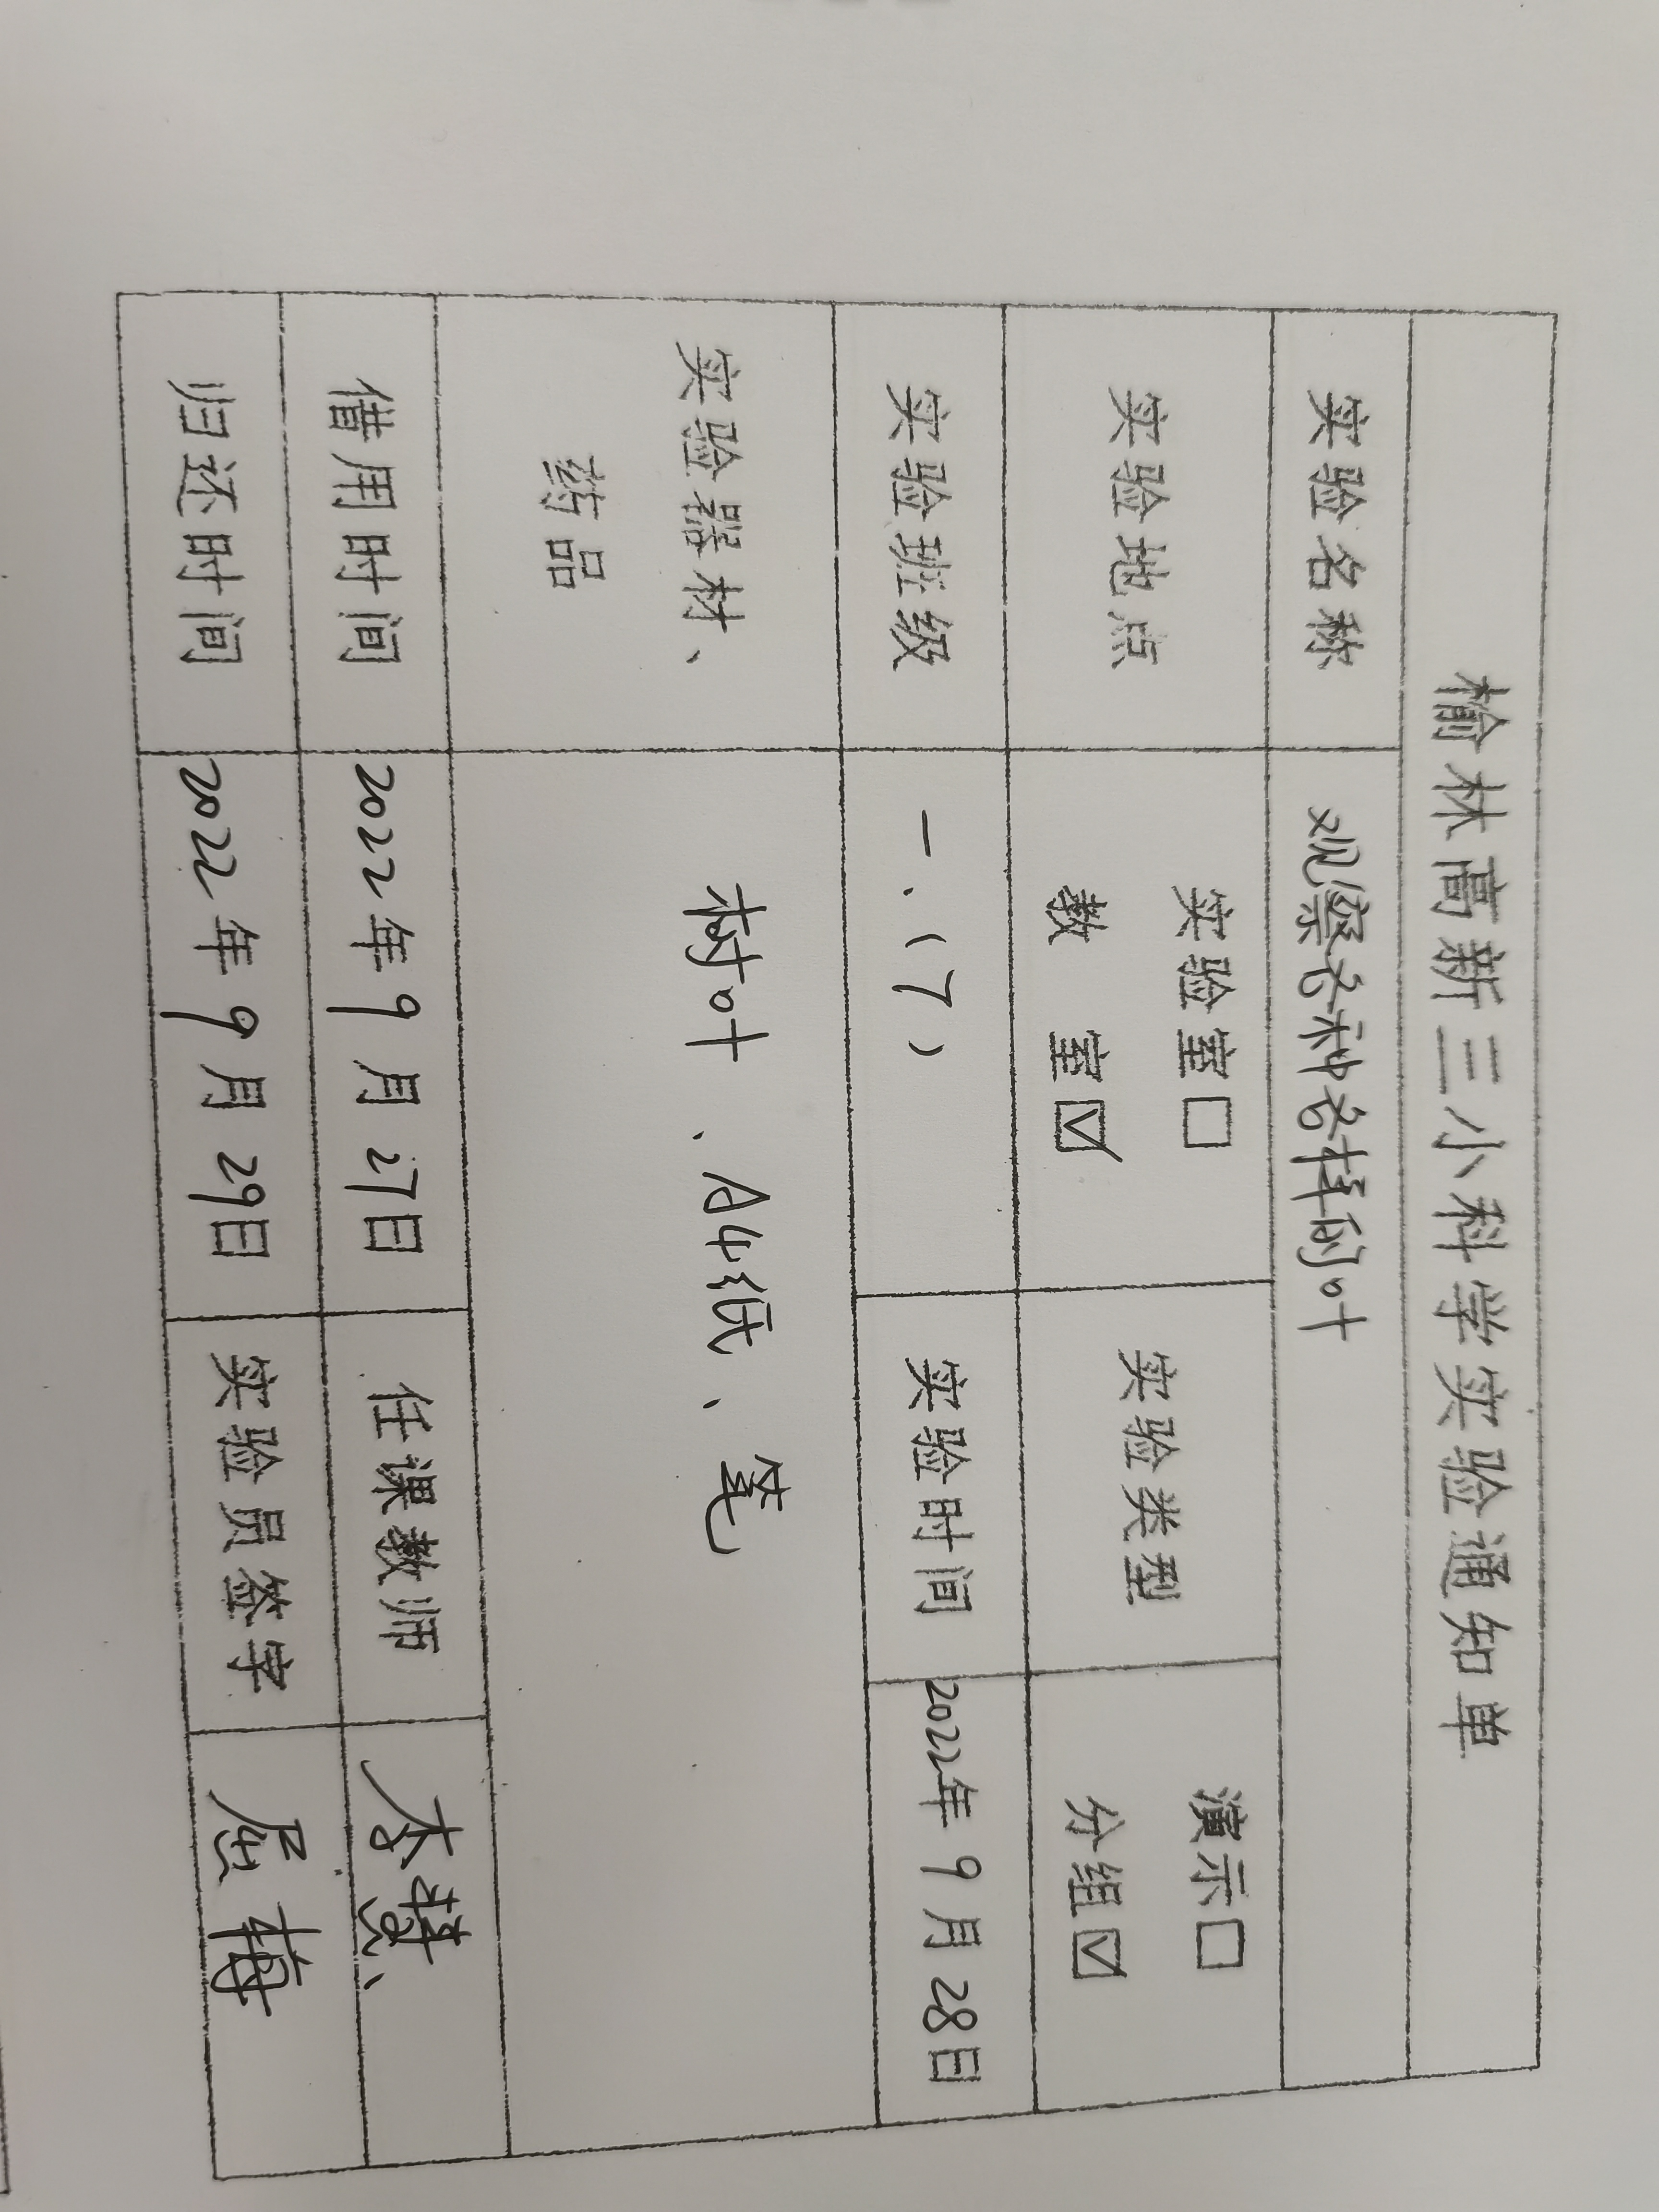 榆林高新三小科学实验通知单
实验名称 观察各种各样的叶
实验地点 实验室□ 教 室☑ 实验类型 演示□ 分组☑
实验班级 一、(7) 实验时间 2022年9月28日
实验器材、
药品
树叶、A4纸、笔
借用时间 2022年9月27日 任课教师 李
归还时间 2022年9月29日 实验员签字